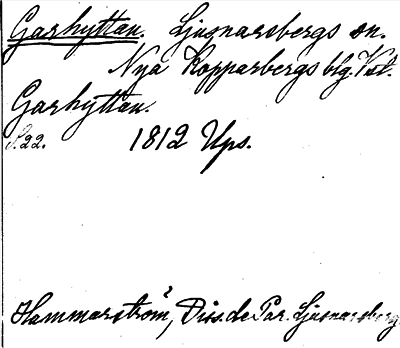 Garhyttan. Ljusnarsbergs sn.
Nya Kopparbergs blg. Vst.
Garhyttan.
S. 22. 1812 Ups.
Hammarström, Diss. de Par. Ljusnarsberg